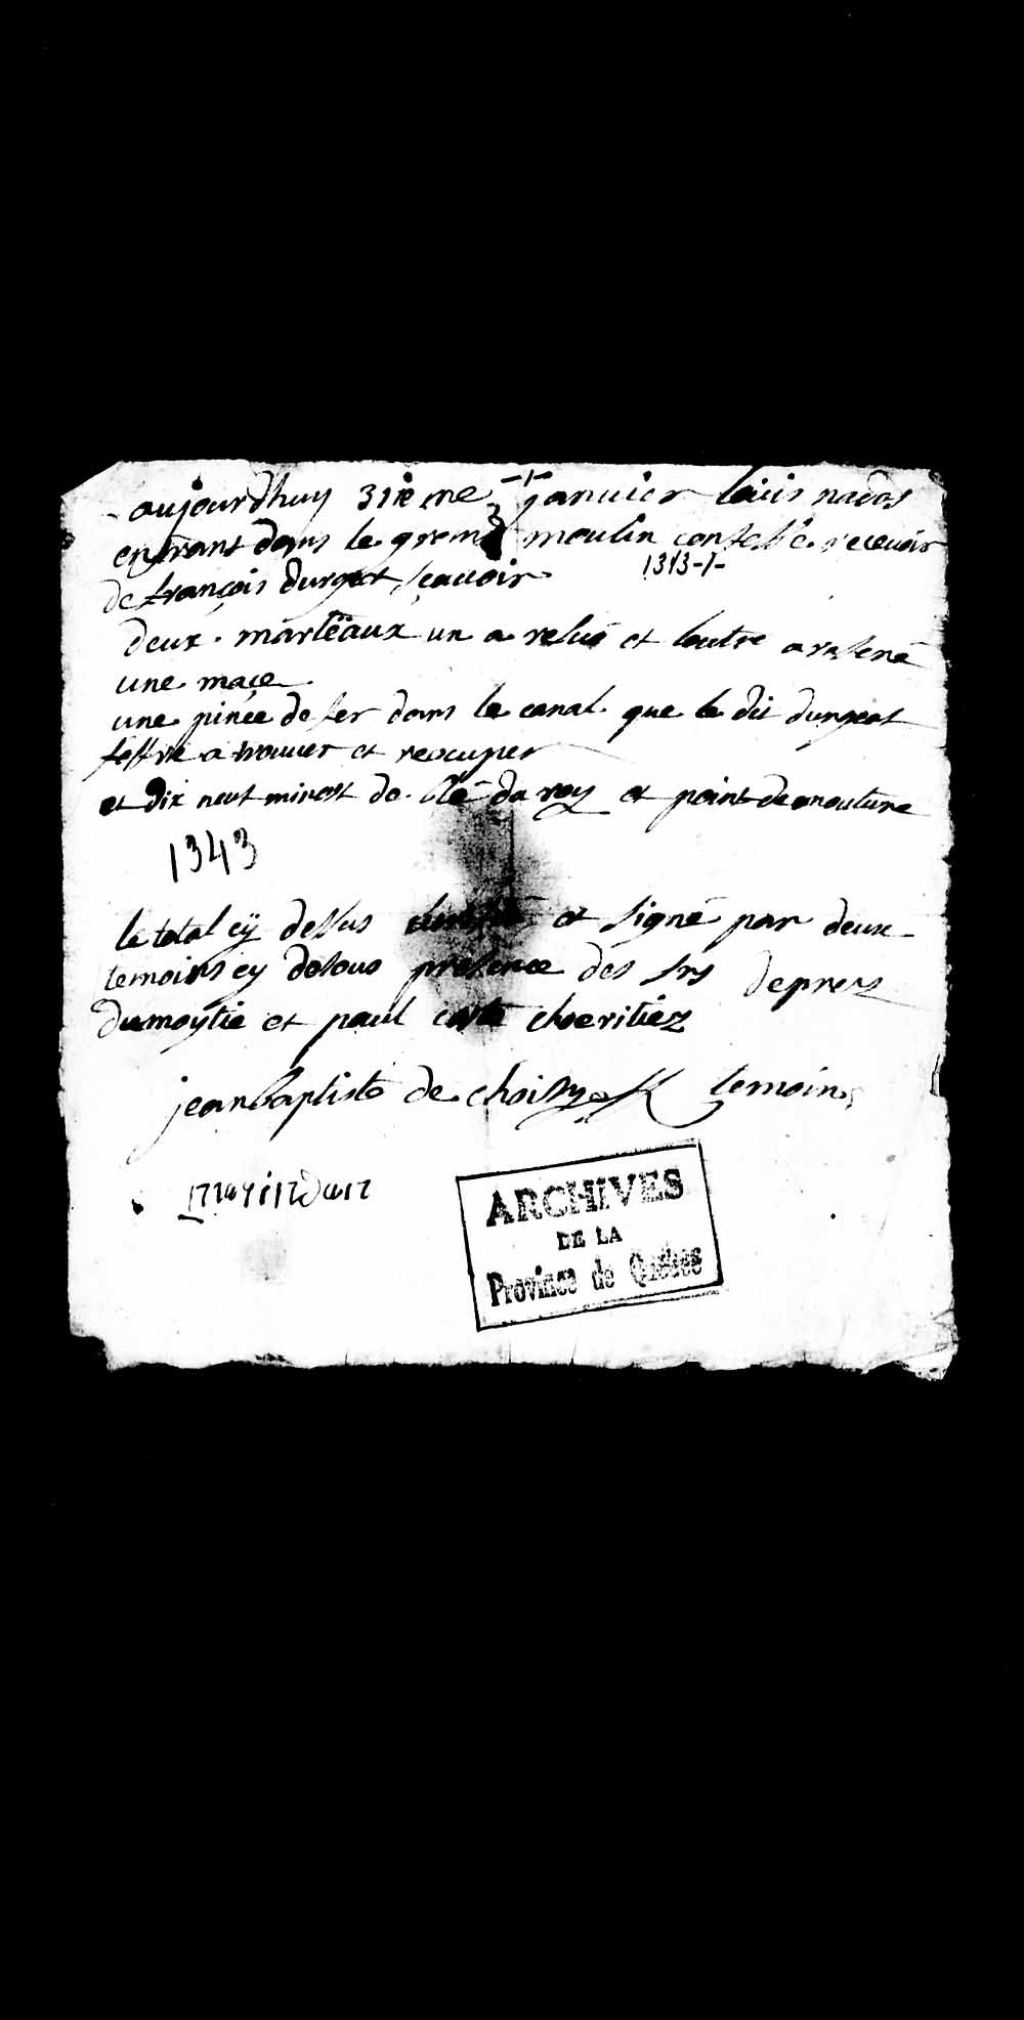 aujourdhuy 31ieme janvier louis nadot
entrant dans le grand moulin confesse recevoir
1313-/-
de françois durget sçavoir
deux marteaux un a et lautre a
une maçe
une pinçe de fer dans le canal que le dit durgeat
soffre a trouver et
et dix neuf minost de blé du roy et point de mouture
1343
le total cÿ dessus et signé par deux
temoins cy desous presence des srs deprez
dumoytie et paul
jean baptiste de choisy temoin
ARCHIVES
DE LA
Province de Québec